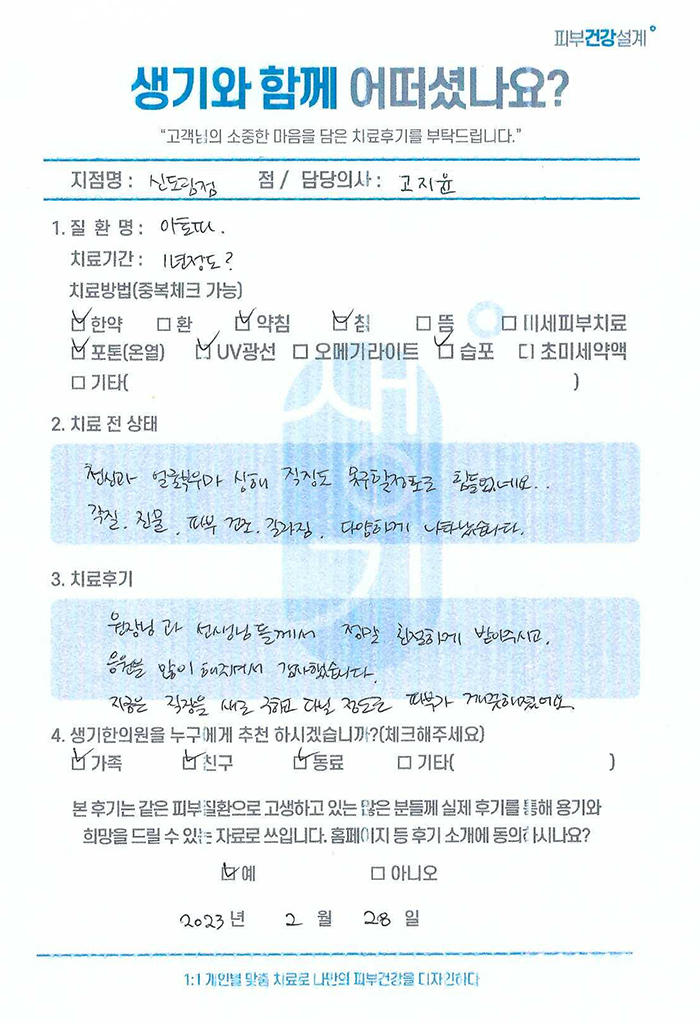 피부건강설계
생기와 함께 어떠셨나요?
"고객님의 소중한 마음을 담은 치료후기를 부탁드립니다."
지점명 : 신도림점 점 / 담당의사 : 고지윤
1. 질 환 명 : 아토피.
치료기간 : 1년정도?
치료방법(중복체크 가능)
☑한약 □환 ☑약침 ☑침 □뜸 □미세피부치료
☑포톤(온열) ☑UV광선 □오메가라이트 ☑습포 □초미세약액
□기타( )
2. 치료 전 상태
전신과 얼굴부위가 상해 직장도 못구할정도로 힘들었네요..
각질. 진물. 피부 건조. 갈라짐. 다양하게 나타났습니다.
3. 치료후기
원장님과 선생님들께서 정말 친절하게 받아주시고.
응원을 많이 해주셔서 감사했습니다.
지금은 직장을 새로 구하고 다닐 정도로 피부가 깨끗해졌어요.
4. 생기한의원을 누구에게 추천 하시겠습니까?(체크해주세요)
☑가족 ☑친구 ☑동료 □기타( )
본 후기는 같은 피부질환으로 고생하고 있는 많은 분들께 실제 후기를 통해 용기와
희망을 드릴 수 있는 자료로 쓰입니다. 홈페이지 등 후기 소개에 동의하시나요?
☑예 □아니오
2023년 2월 28일
1:1 개인별 맞춤 치료로 나만의 피부건강을 디자인하다
생기